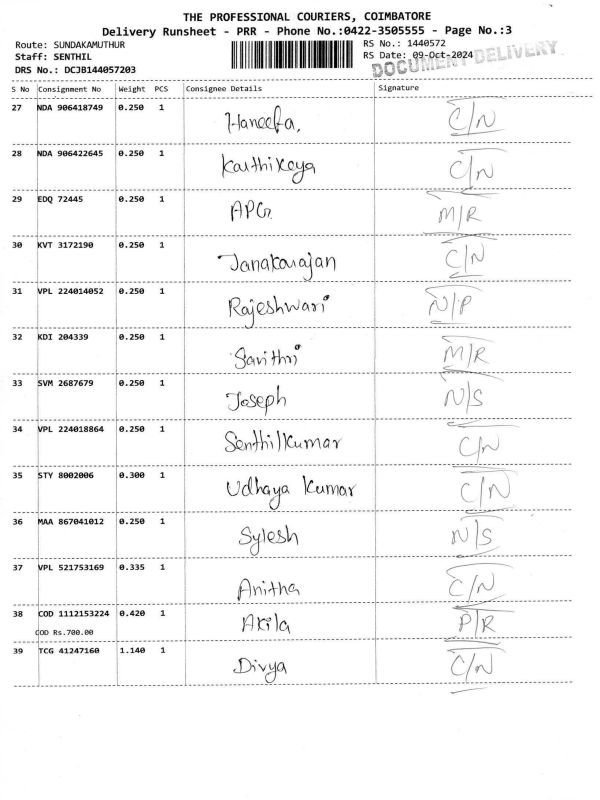 THE PROFESSIONAL COURIERS, COIMBATORE
Delivery Runsheet - PRR - Phone No.:0422-3505555 - Page No.:3
Route: SUNDAKAMUTHUR RS No.: 1440572
Staff: SENTHIL RS Date: 09-Oct-2024
DOCUMENT DELIVERY
DRS No.: DCJB144057203
S No Consignment No Weight PCS Consignee Details Signature
27 NDA 906418749 0.250 1 Haneefa, C/N
28 NDA 906422645 0.250 1 Karthikeya C/N
29 EDQ 72445 0.250 1 APG. M/R
30 KVT 3172190 0.250 1 Janakarajan C/N
31 VPL 224014052 0.250 1 Rajeshwari N/P
32 KDI 204339 0.250 1 Savithri M/R
33 SVM 2687679 0.250 1 Joseph N/S
34 VPL 224018864 0.250 1 Senthilkumar C/N
35 STY 8002006 0.300 1 Udhaya Kumar C/N
36 MAA 867041012 0.250 1 Sylesh N/S
37 VPL 521753169 0.335 1 Anitha C/N
38 COD 1112153224 0.420 1 Akila P/R
COD Rs.700.00
39 TCG 41247160 1.140 1 Divya C/N